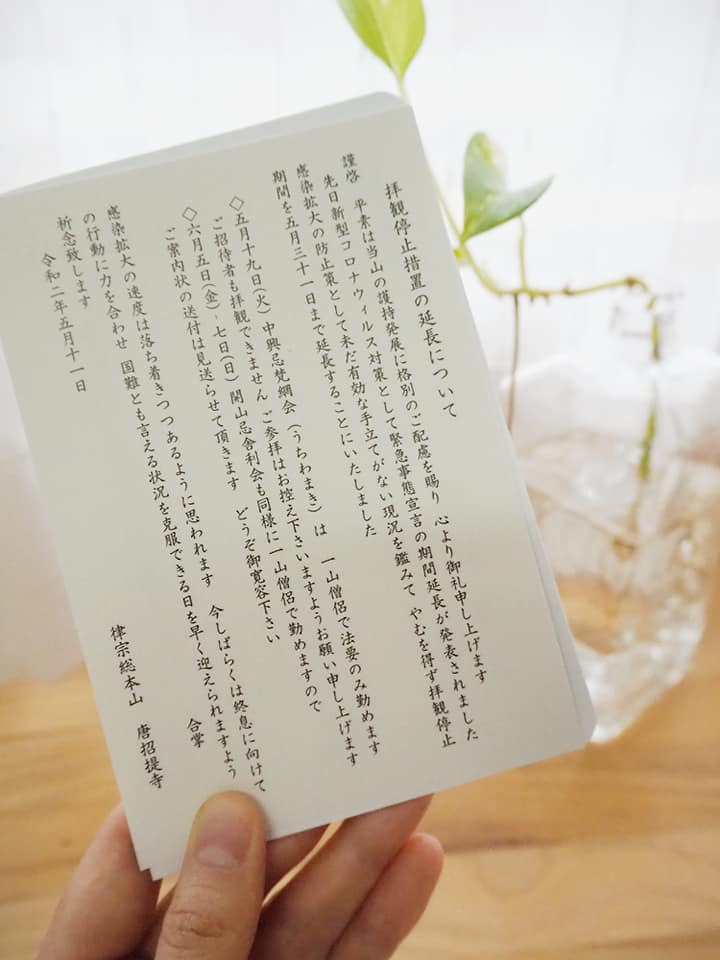 拝観停止措置の延長について
謹啓　平素は当山の護持発展に格別のご配慮を賜り　心より御礼申し上げます
先日新型コロナウィルス対策として緊急事態宣言の期間延長が発表されました
感染拡大の防止策として未だ有効な手立てがない現況を鑑みて　やむを得ず拝観停止
期間を五月三十一日まで延長することにいたしました
◇五月十九日(火)中興忌梵網会（うちわまき）は　一山僧侶で法要のみ勤めます
ご招待者も拝観できません　ご参拝はお控え下さいますようお願い申し上げます
◇六月五日(金)、七日(日)開山忌舎利会も同様に一山僧侶で勤めますので
ご案内状の送付は見送らせて頂きます　どうぞ御寛容下さい
感染拡大の速度は落ち着きつつあるように思われます　今しばらくは終息に向けて
の行動に力を合わせ　国難とも言える状況を克服できる日を早く迎えられますよう
祈念致します　合掌
令和二年五月十一日
律宗総本山　唐招提寺